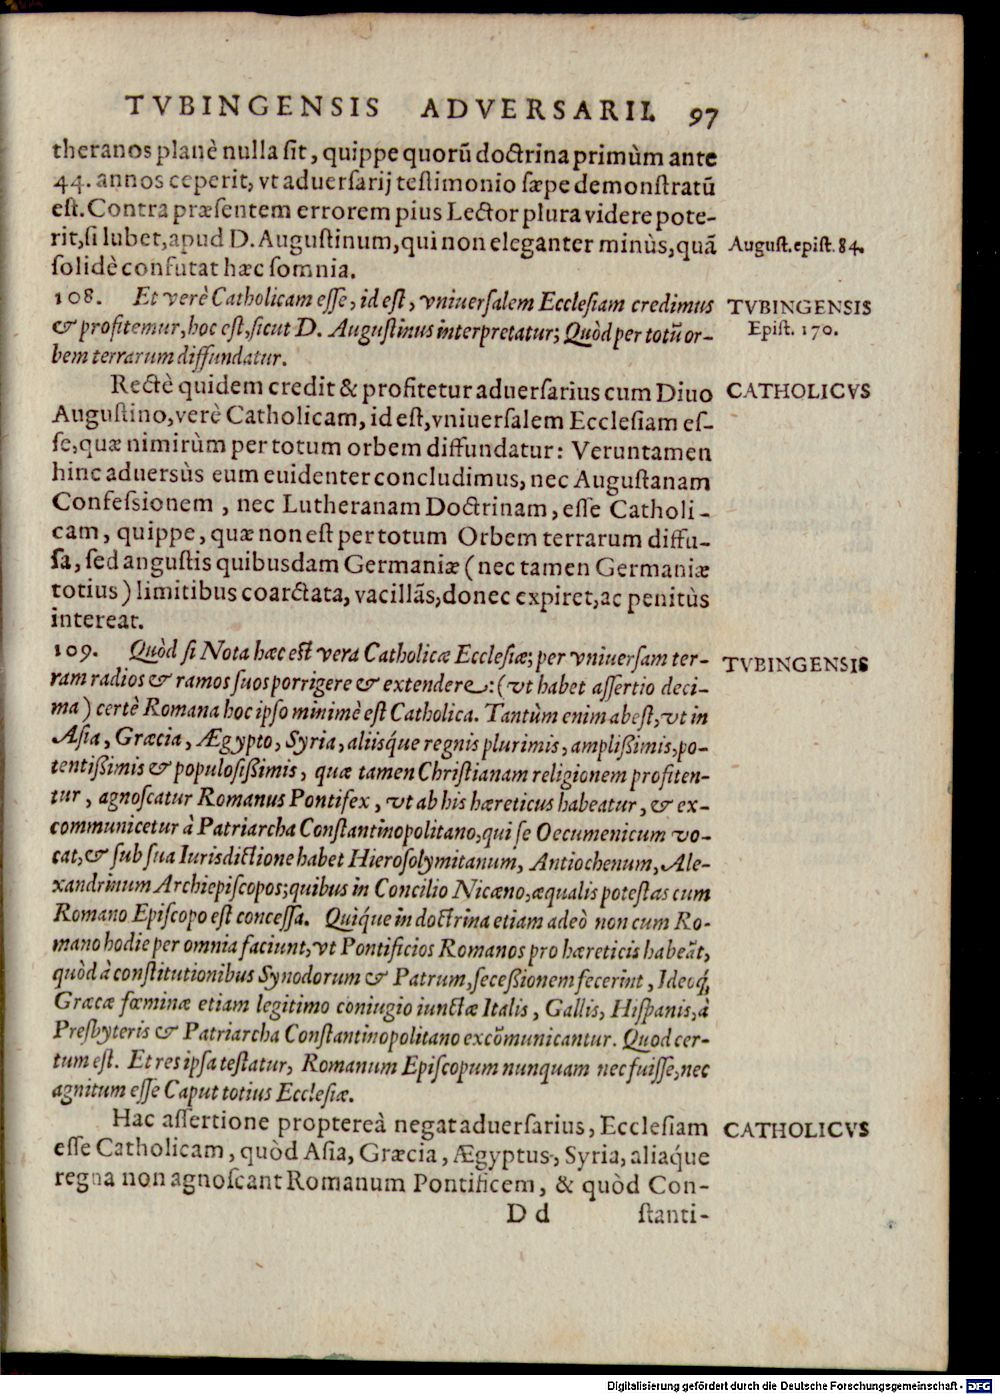 TVBINGENSIS ADVERSARII. 97
theranos planè nulla sit, quippe quorũ doctrina primùm ante
44. annos ceperit, vt aduersarij testimonio sæpe demonstratũ
est. Contra præsentem errorem pius Lector plura videre pote-
rit, si lubet, apud D. Augustinum, qui non eleganter minùs, quã
August. epist. 84.
solidè confutat hæc somnia.
108. Et verè Catholicam esse, id est, vniuersalem Ecclesiam credimus
TVBINGENSIS
& profitemur, hoc est, sicut D. Augustinus interpretatur; Quòd per totũ or-
Epist. 170.
bem terrarum diffundatur.
Rectè quidem credit & profitetur aduersarius cum Diuo
CATHOLICVS
Augustino, verè Catholicam, id est, vniuersalem Ecclesiam es-
se, quæ nimirùm per totum orbem diffundatur: Veruntamen
hinc aduersùs eum euidenter concludimus, nec Augustanam
Confessionem, nec Lutheranam Doctrinam, esse Catholi-
cam, quippe, quæ non est per totum Orbem terrarum diffu-
sa, sed angustis quibusdam Germaniæ (nec tamen Germaniæ
totius) limitibus coarctata, vacillãs, donec expiret, ac penitùs
intereat.
109. Quòd si Nota hæc est vera Catholicæ Ecclesiæ; per vniuersam ter-
TVBINGENSIS
ram radios & ramos suos porrigere & extendere: (vt habet assertio deci-
ma) certè Romana hoc ipso minimè est Catholica. Tantùm enim abest, vt in
Asia, Græcia, Ægypto, Syria, aliisq́ue regnis plurimis, amplißimis, po-
tentißimis & populosißimis, quæ tamen Christianam religionem profiten-
tur, agnoscatur Romanus Pontifex, vt ab his hæreticus habeatur, & ex-
communicetur à Patriarcha Constantinopolitano, qui se Oecumenicum vo-
cat, & sub sua Iurisdictione habet Hierosolymitanum, Antiochenum, Ale-
xandrinum Archiepiscopos; quibus in Concilio Nicæno, æqualis potestas cum
Romano Episcopo est concessa. Quiq́ue in doctrina etiam adeò non cum Ro-
mano hodie per omnia faciunt, vt Pontificios Romanos pro hæreticis habeãt,
quòd à constitutionibus Synodorum & Patrum, seceßionem fecerint, Ideoq́,
Græcæ fœminæ etiam legitimo coniugio iunctæ Italis, Gallis, Hispanis, à
Presbyteris & Patriarcha Constantinopolitano excõmunicantur. Quod cer-
tum est. Et res ipsa testatur, Romanum Episcopum nunquam nec fuisse, nec
agnitum esse Caput totius Ecclesiæ.
Hac assertione proptereà negat aduersarius, Ecclesiam
CATHOLICVS
esse Catholicam, quòd Asia, Græcia, Ægyptus, Syria, aliaq́ue
regna non agnoscant Romanum Pontificem, & quòd Con-
D d stanti-
Digitalisierung gefördert durch die Deutsche Forschungsgemeinschaft - DFG